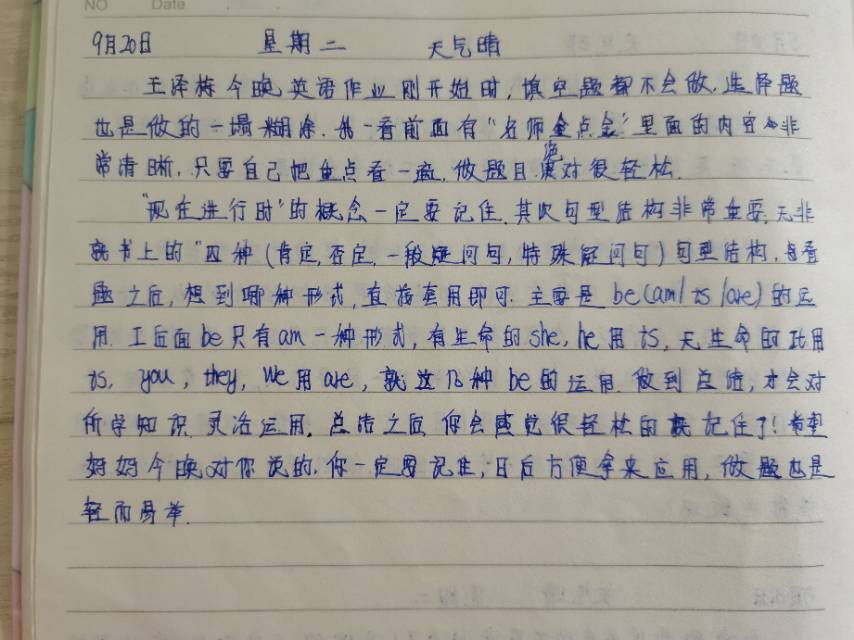 NO Date
9月20日 星期二 天气晴
王泽梅今晚英语作业刚开始时,填空题都不会做,选择题
也是做的一塌糊涂.我一看前面有“名师金点金”里面的内容非
常清晰,只要自己把重点看一遍,做题目应对很轻松.
“现在进行时”的概念一定要记住.其次句型结构非常重要,无非
就书上的“四种(肯定,否定,一般疑问句,特殊疑问句)句型结构,每看
题之后,想到哪种形式,直接套用即可.主要是be(am/is/are)的运
用.I后面be只有am一种形式,有生命的she,he用is,无生命的it用
is, you, they, we用are,就这几种be的运用.做到总结,才会对
所学知识灵活运用.总结之后你会感觉很轻松的就记住了!希望
妈妈今晚对你说的.你一定要记住,日后方便拿来应用,做题也是
轻而易举.